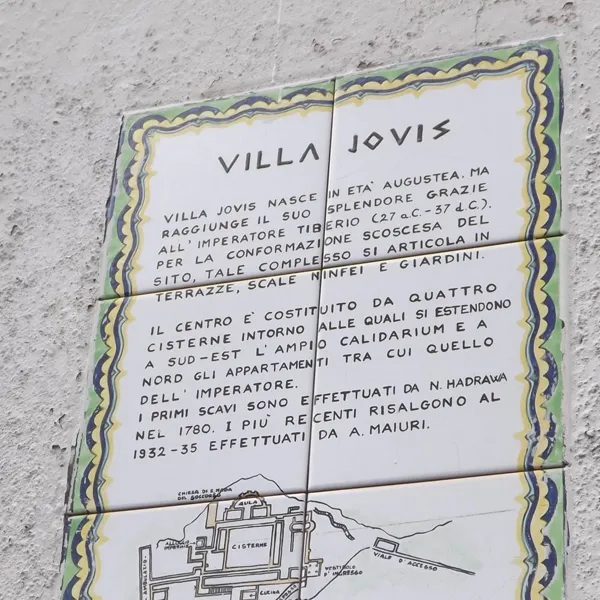 VILLA JOVIS
VILLA JOVIS NASCE IN ETÀ AUGUSTEA. MA
RAGGIUNGE IL SUO SPLENDORE GRAZIE
ALL'IMPERATORE TIBERIO (27 a.C.-37 d.C.).
PER LA CONFORMAZIONE SCOSCESA DEL
SITO, TALE COMPLESSO SI ARTICOLA IN
TERRAZZE, SCALE NINFEI E GIARDINI.
IL CENTRO E' COSTITUITO DA QUATTRO
CISTERNE INTORNO ALLE QUALI SI ESTENDONO
A SUD-EST L'AMPIO CALIDARIUM E A
NORD GLI APPARTAMENTI TRA CUI QUELLO
DELL'IMPERATORE.
I PRIMI SCAVI SONO EFFETTUATI DA N. HADRAWA
NEL 1780. I PIÙ RECENTI RISALGONO AL
1932-35 EFFETTUATI DA A. MAIURI.
CHIESA DI S. MARIA
DEL SOCCORSO
AULA
ALLOGGIO
IMPERIALE
CISTERNE
AMBULATIO
VESTIBOLO
D'INGRESSO
VIALE D'ACCESSO
CUCINA